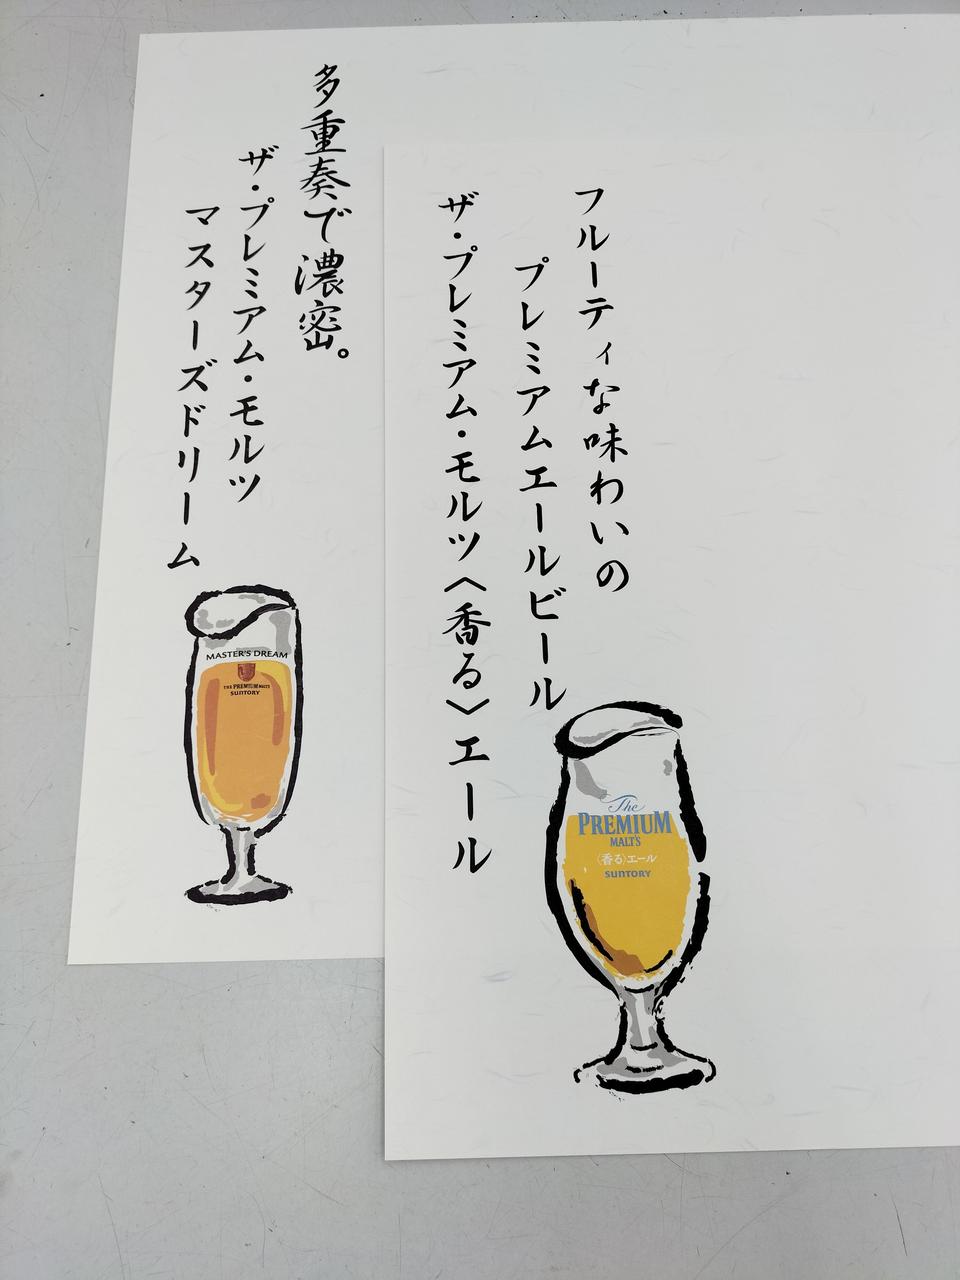 多重奏で濃密。
ザ・プレミアム・モルツ
マスターズドリーム
MASTER'S DREAM
THE PREMIUM MALT'S
SUNTORY
フルーティな味わいの
プレミアムエールビール
ザ・プレミアム・モルツ〈香る〉エール
The
PREMIUM
MALT'S
〈香る〉エール
SUNTORY